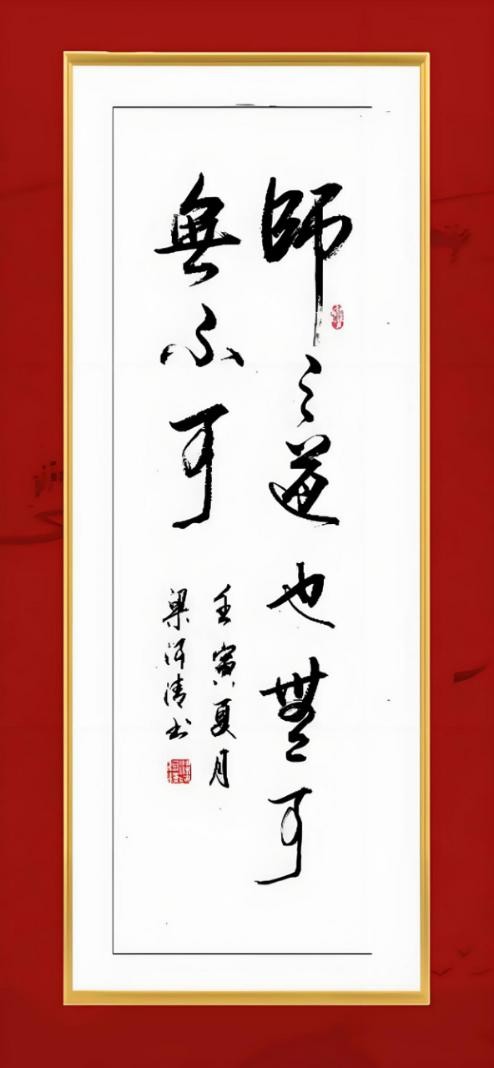 師之道也無可
無不可
壬寅夏月
梁洋清书